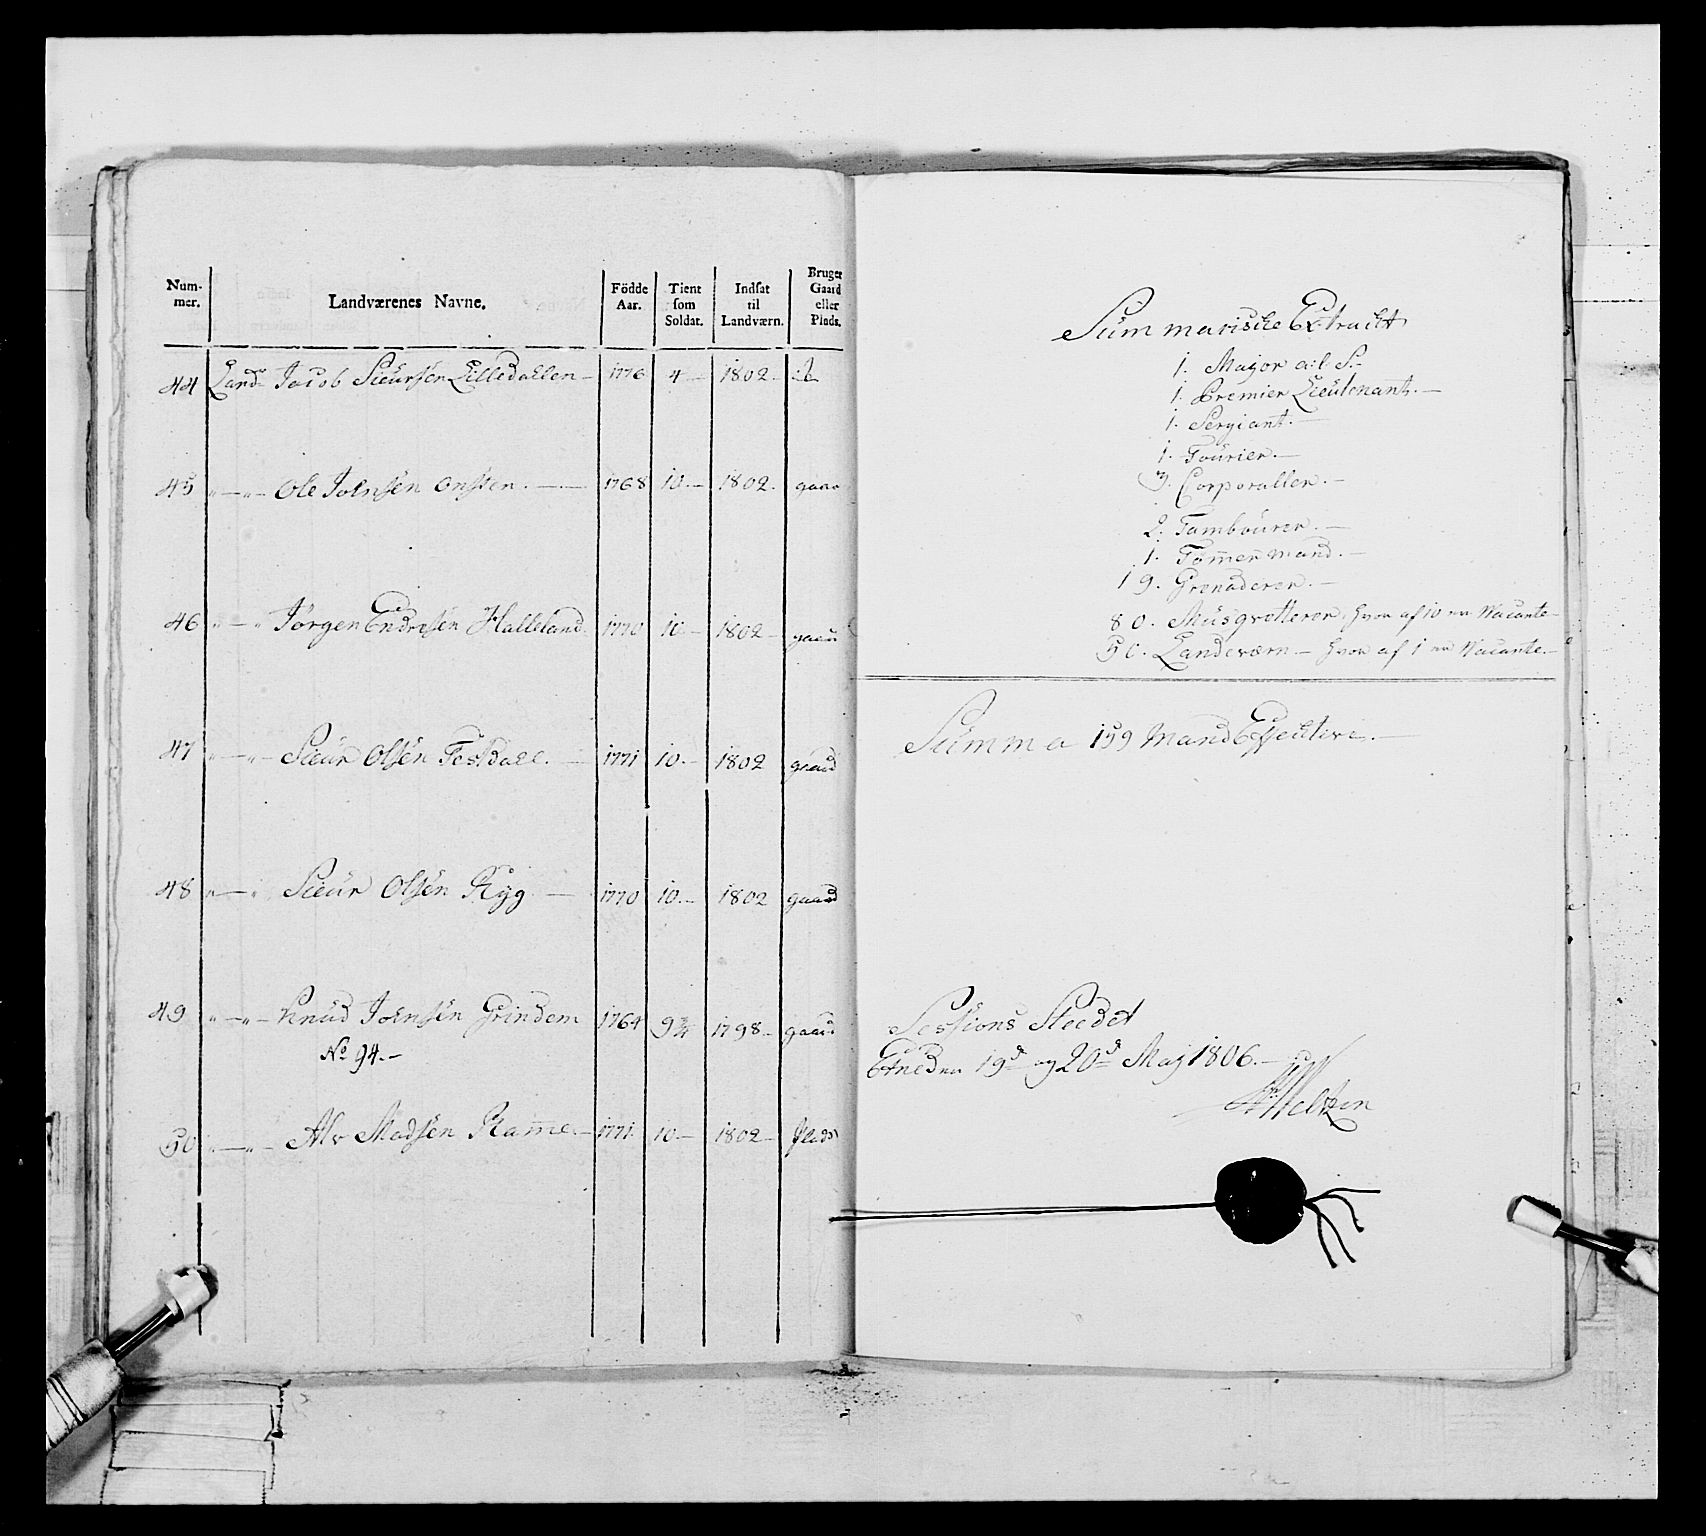 Num-
mer.
Landværenes Navne.
Födde
Aar.
Tient
som
Soldat.
Indsat
til
Landværn.
Bruger
Gaard
eller
Plads.
44 Land Jacob Siursen Lilledahlen 1776 4 1802
45 " — " Ole Johnsen Onsten 1768 10 1802 gaar
46 " — " Jørgen Endresen Halleland 1770 10 1802
47 " — " Siur Olsen Tesdall 1771 10 1802 gaard
48 " — " Siur Olsen Ryg 1770 10 1802 gaard
49 " — " Knud Johnsen Grindem 1764 9¾ 1798 gaard
No 94.
50 " — " Alv Madsen Rame 1771 10 1802 Plads
Summariske Extract
1. Major a:l: S:
1. Premier Lieutenant.
1. Sergiant.
1. Fourier.
3. Corporaller.
2. Tambourer.
1. Tømermand.
19. Grenaderer.
80. Musqvetterer, hvor af 10 er Vacante
50. Landeværn — hvor af 1 er Vacante.
Summa 159 Mand Effective.
Sessions Steedet
Etne den 19de og 20de Maj 1806.